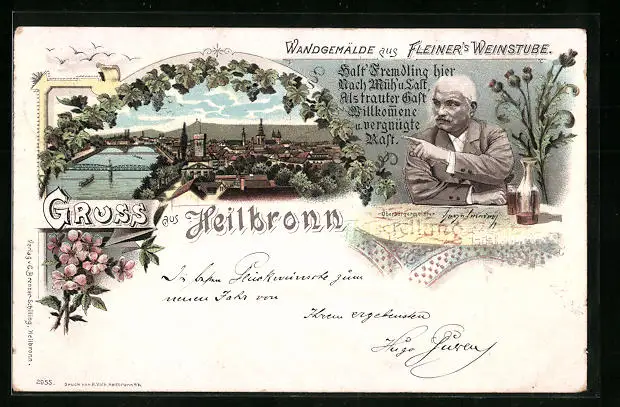 WANDGEMÄLDE aus FLEINER'S WEINSTUBE.
Halt' Fremdling hier
Nach Müh u. Last,
Als trauter Gast
Willkomene
u. vergnügte
Rast.
Oberbürgermeister
GRUSS aus Heilbronn
Die besten Glückwünsche zum
neuen Jahr von
Ihrem ergebensten
Hugo
Heilbronn.
2055.
Druck von